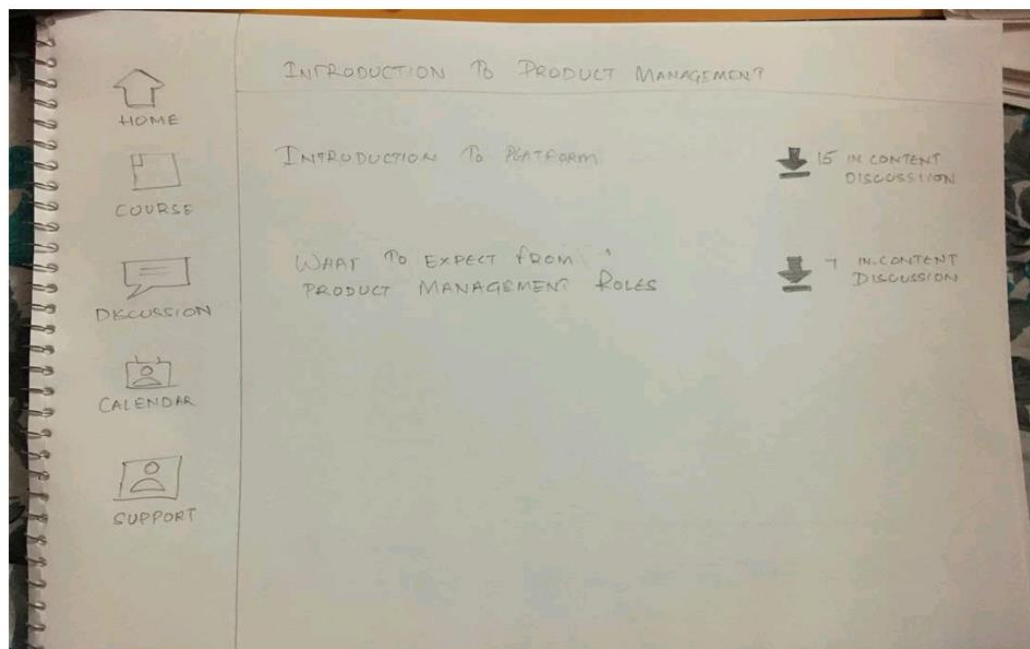 HOME
COURSE
DISCUSSION
CALENDAR
SUPPORT
INTRODUCTION TO PRODUCT MANAGEMENT
INTRODUCTION TO PLATFORM
15 IN CONTENT
DISCUSSION
WHAT TO EXPECT FROM
PRODUCT MANAGEMENT ROLES
7 IN-CONTENT
DISCUSSION